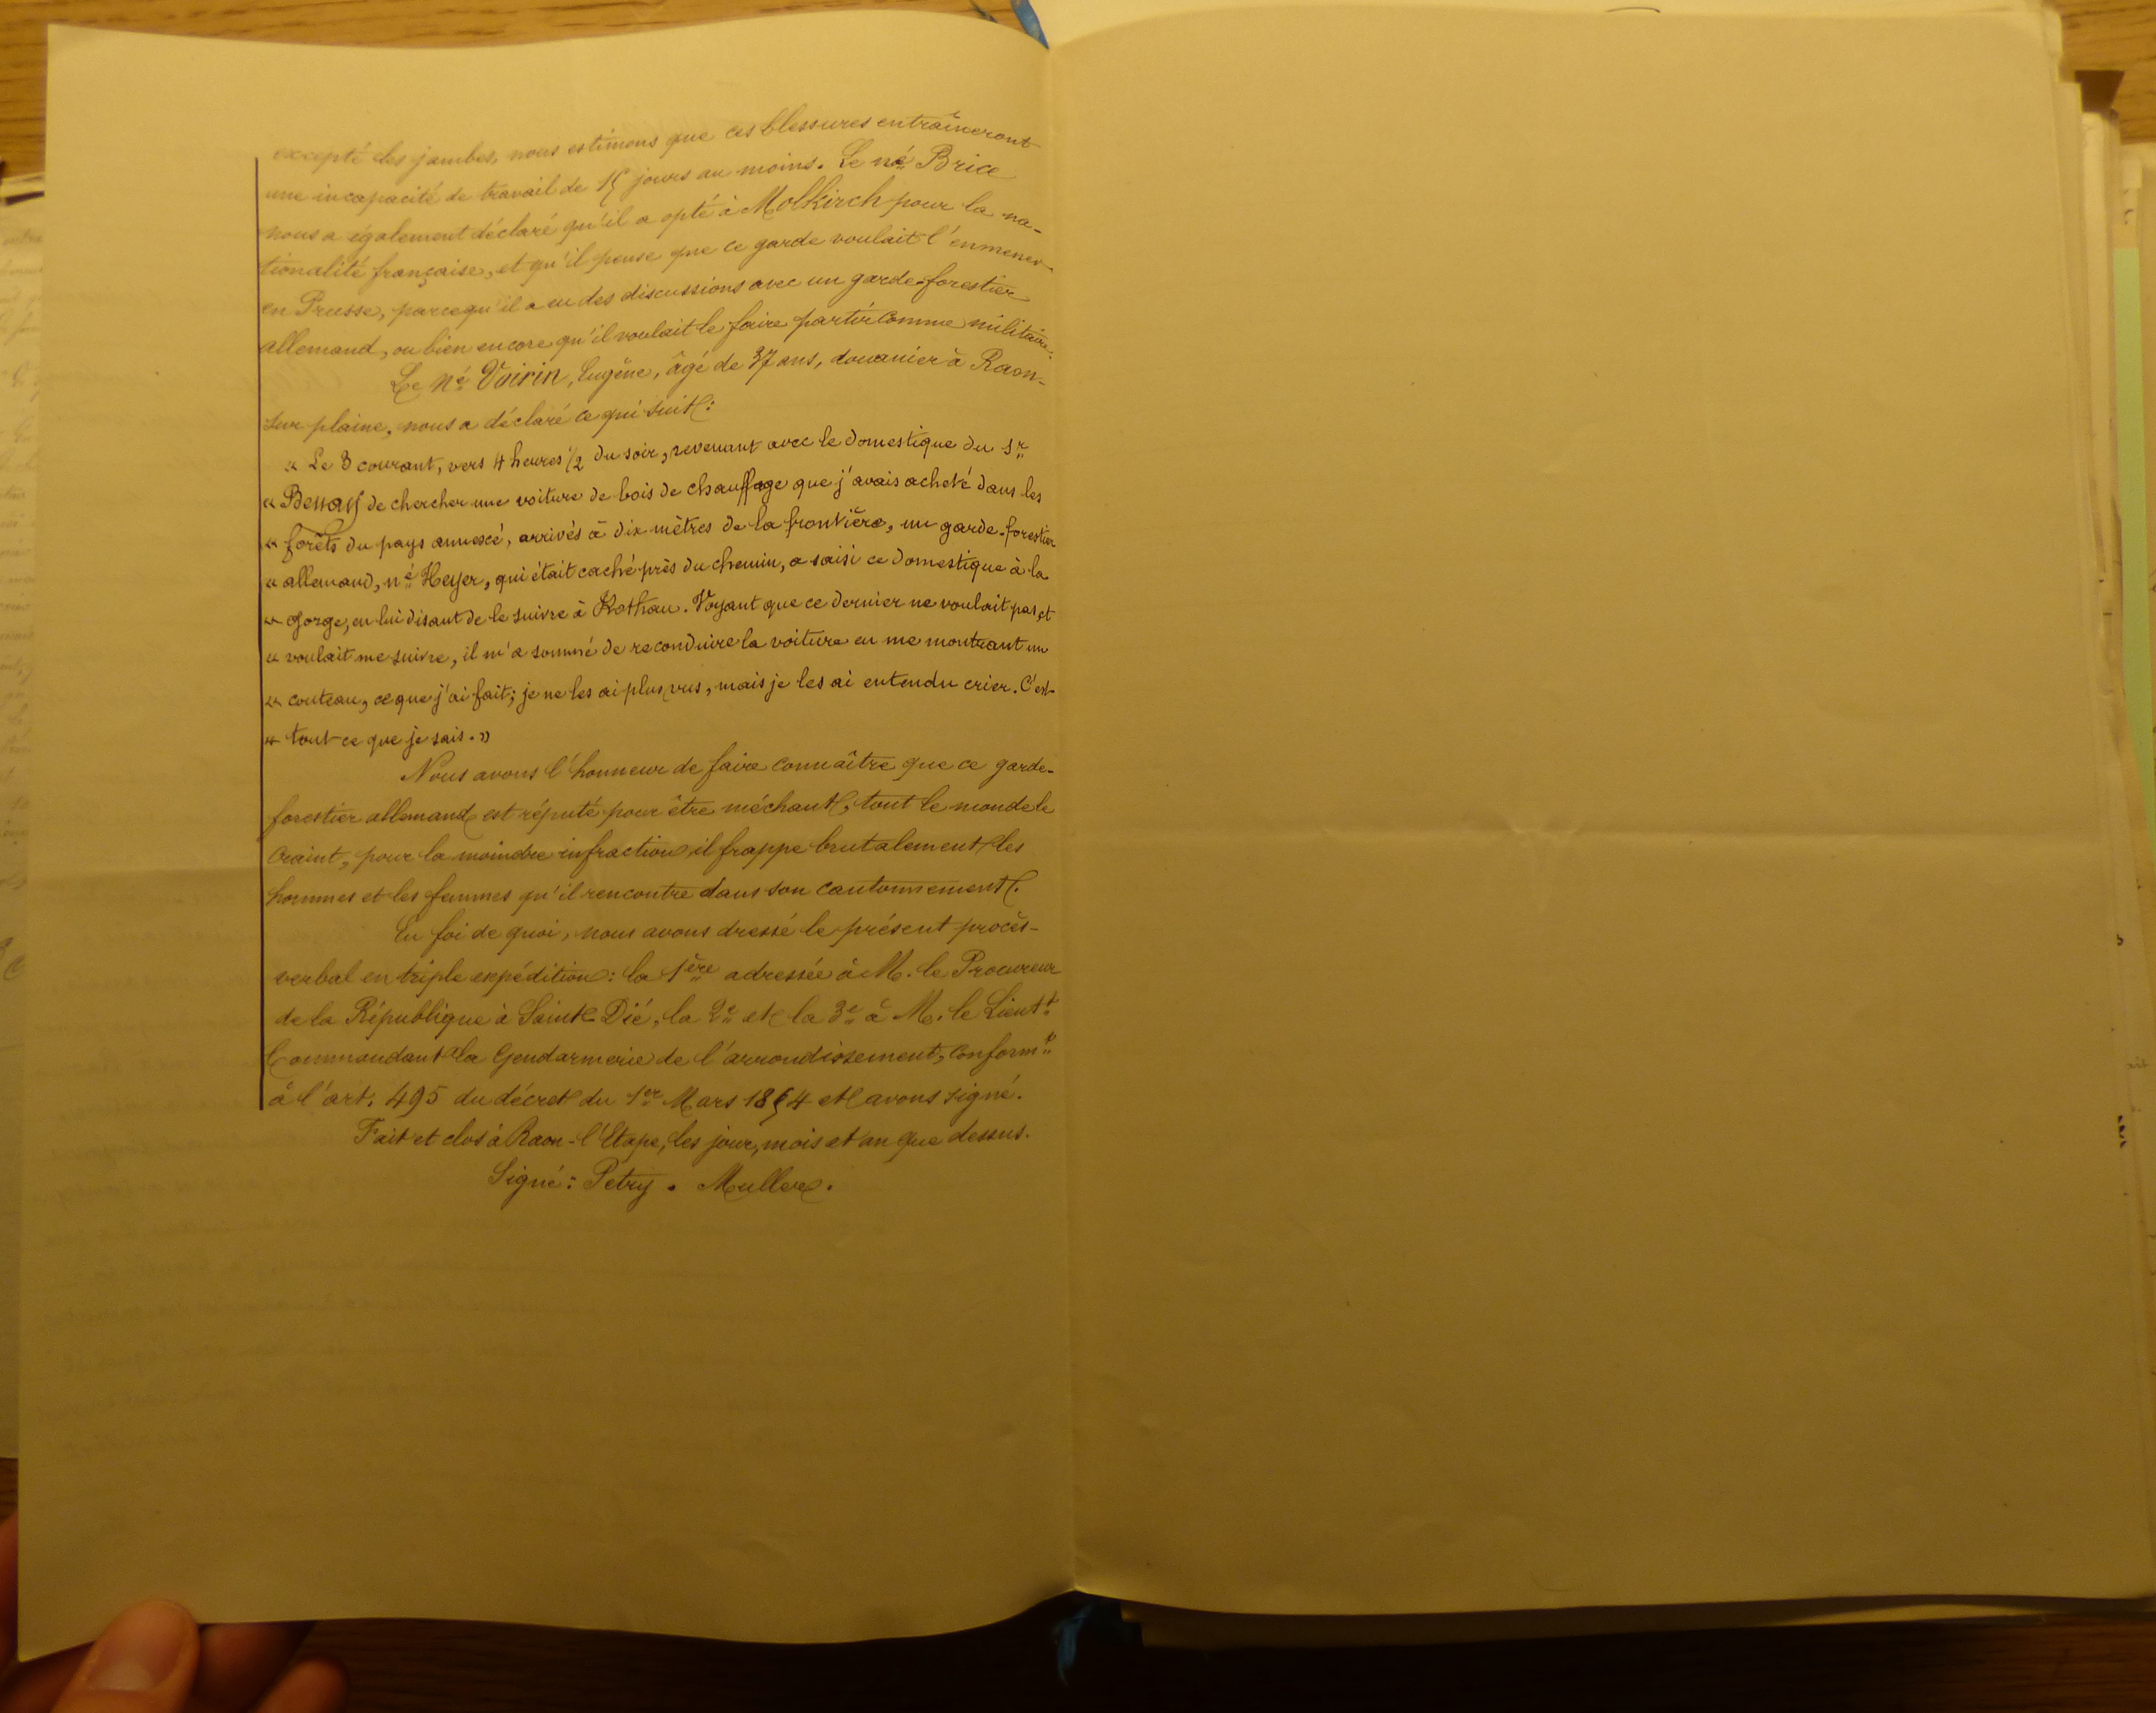 excepté les jambes, nous estimons que ces blessures entraîneront
une incapacité de travail de 15 jours au moins. Le né Brice
nous a également déclaré qu'il a opté à Molkirch pour la na-
tionalité française, et qu'il pense que ce garde voulait l'emmener
en Prusse, parcequ'il a eu des discussions avec un garde-forestier
allemand, ou bien encore qu'il voulait le faire partir comme militaire.
Le né Voirin, Eugène, âgé de 37 ans, douanier à Raon-
sur plaine, nous a déclaré ce qui suit:
« Le 3 courant, vers 4 heures 1/2 du soir, revenant avec le domestique du Sr
« Benay de chercher une voiture de bois de chauffage que j'avais acheté dans les
« forêts du pays annexé, arrivés à dix mètres de la frontière, un garde-forestier
« allemand, né Heyer, qui était caché près du chemin, a saisi ce domestique à la
« gorge, en lui disant de le suivre à Rothau. Voyant que ce dernier ne voulait pas, et
« voulait me suivre, il m'a sommé de reconduire la voiture en me montrant un
« couteau, ce que j'ai fait; je ne les ai plus vus, mais je les ai entendu crier. C'est
« tout ce que je sais. »
Nous avons l'honneur de faire connaître que ce garde-
forestier allemand est réputé pour être méchant, tout le monde le
craint, pour la moindre infraction il frappe brutalement les
hommes et les femmes qu'il rencontre dans son cantonnement.
En foi de quoi, nous avons dressé le présent procès-
verbal en triple expédition: la 1ère adressée à M. le Procureur
de la République à Saint-Dié, la 2e et la 3e à M. le Lieutt
Commandant la Gendarmerie de l'arrondissement, conformt
à l'art. 495 du décret du 1er Mars 1854 et avons signé.
Fait et clos à Raon-l'Etape, les jour, mois et an que dessus.
Signé: Petry. Muller.